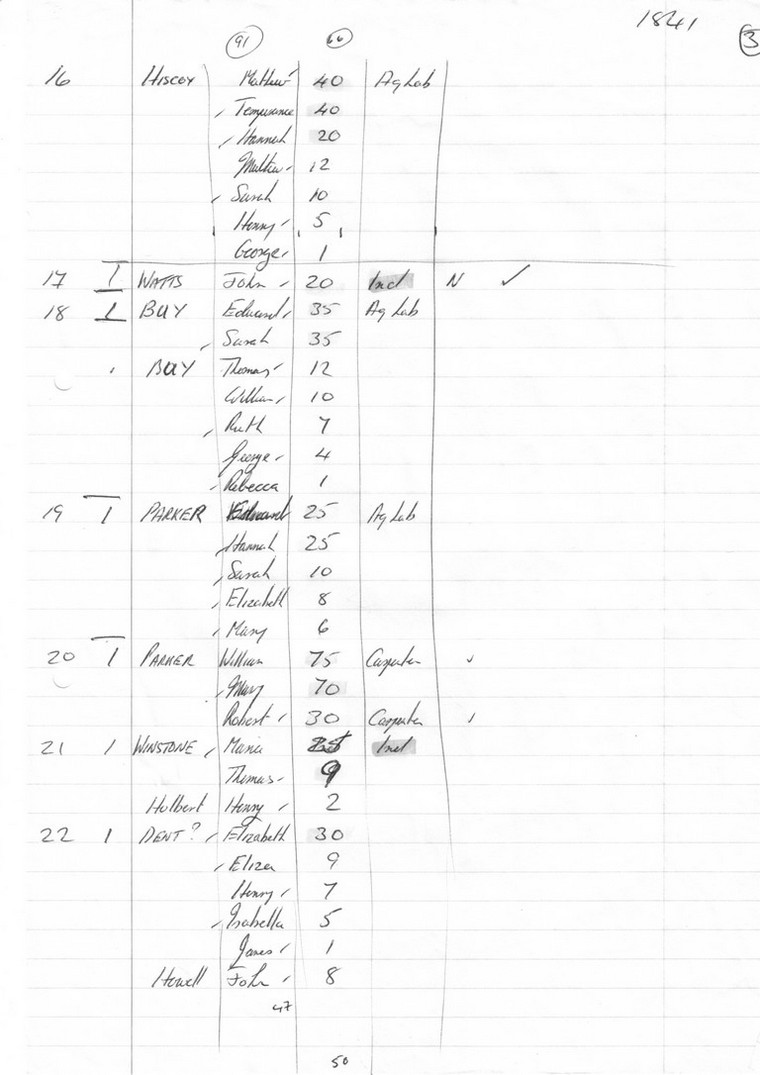 1841
3
91 66
16 HISCOX Mathew 40 Ag Lab
Temperance 40
Hannah 20
Mathew 12
Sarah 10
Henry 5
George 1
17 1 WATTS John 20 Ind N ✓
18 1 BUY Edward 35 Ag Lab
Sarah 35
BUY Thomas 12
William 10
Ruth 7
George 4
Rebecca 1
19 1 PARKER Edward 25 Ag Lab
Hannah 25
Sarah 10
Elizabeth 8
Mary 6
20 1 PARKER William 75 Carpenter ✓
Mary 70
Robert 30 Carpenter
21 1 WINSTONE Maria 25 Ind
Thomas 9
Hulbert Henry 2
22 1 DENT? Elizabeth 30
Eliza 9
Henry 7
Isabella 5
James 1
Howell John 8
47
50